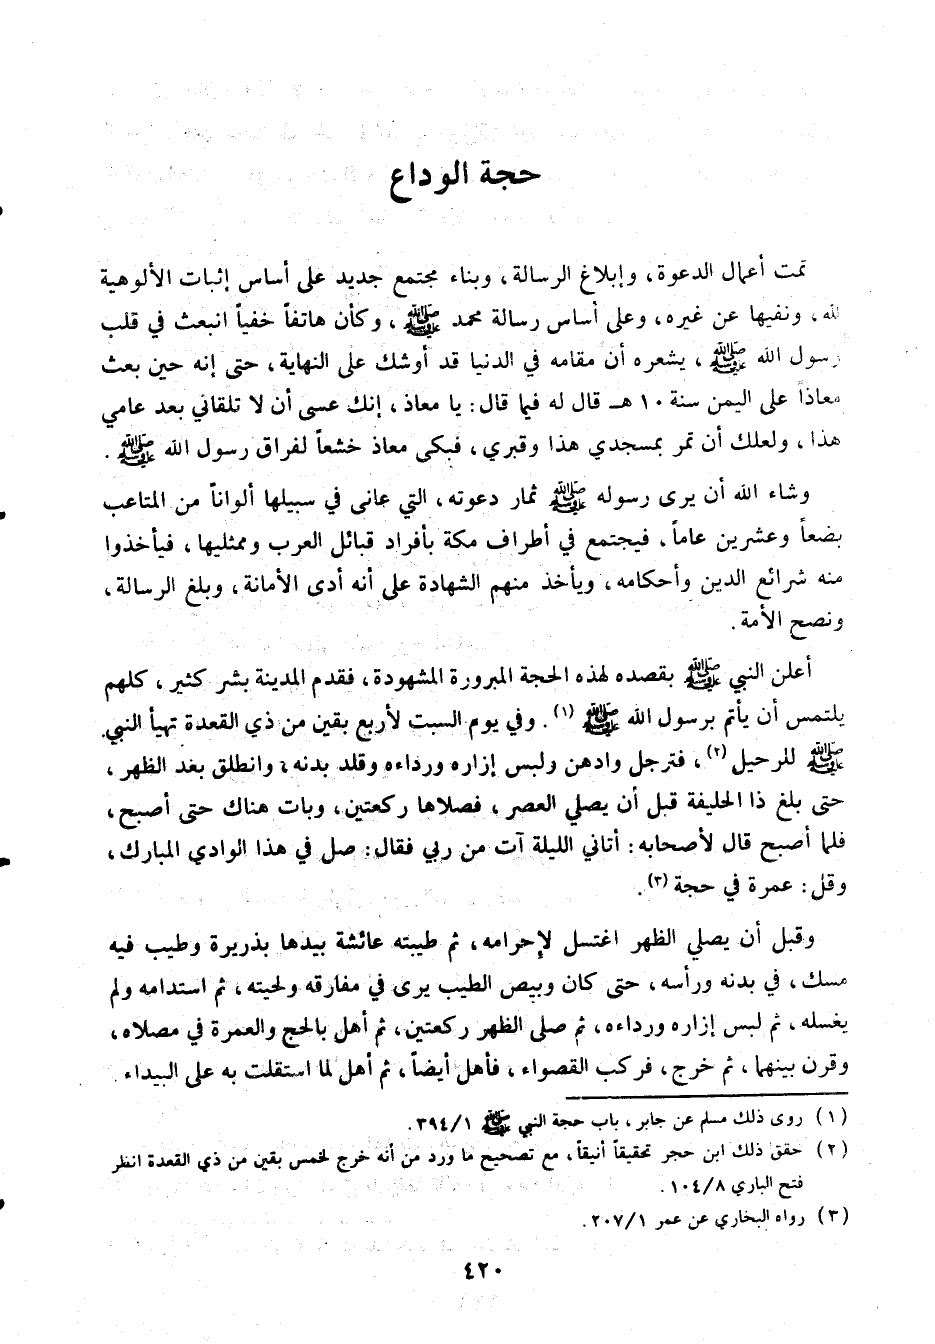 حجة الوداع
تمت أعمال الدعوة، وإبلاغ الرسالة، وبناء مجتمع جديد على أساس إثبات الألوهية
لله، ونفيها عن غيره، وعلى أساس رسالة محمد ﷺ، وكأن هاتفاً خفياً انبعث في قلب
رسول الله ﷺ، يشعره أن مقامه في الدنيا قد أوشك على النهاية، حتى إنه حين بعث
معاذاً على اليمن سنة ١٠ هـ قال له فيما قال: يا معاذ، إنك عسى أن لا تلقاني بعد عامي
هذا، ولعلك أن تمر بمسجدي هذا وقبري، فبكى معاذ خشعاً لفراق رسول الله ﷺ.
وشاء الله أن يرى رسوله ﷺ ثمار دعوته، التي عانى في سبيلها ألواناً من المتاعب
بضعاً وعشرين عاماً، فيجتمع في أطراف مكة بأفراد قبائل العرب وممثليها، فيأخذوا
منه شرائع الدين وأحكامه، ويأخذ منهم الشهادة على أنه أدى الأمانة، وبلغ الرسالة،
ونصح الأمة.
أعلن النبي ﷺ بقصده لهذه الحجة المبرورة المشهودة، فقدم المدينة بشر كثير، كلهم
يلتمس أن يأتم برسول الله ﷺ (١). وفي يوم السبت لأربع بقين من ذي القعدة تهيأ النبي
ﷺ للرحيل (٢)، فترجل وادهن ولبس إزاره ورداءه وقلد بدنه، وانطلق بعد الظهر،
حتى بلغ ذا الحليفة قبل أن يصلي العصر، فصلاها ركعتين، وبات هناك حتى أصبح،
فلما أصبح قال لأصحابه: أتاني الليلة آت من ربي فقال: صل في هذا الوادي المبارك،
وقل: عمرة في حجة (٣).
وقبل أن يصلي الظهر اغتسل لإحرامه، ثم طيبته عائشة بيدها بذريرة وطيب فيه
مسك، في بدنه ورأسه، حتى كان وبيص الطيب يرى في مفارقه ولحيته، ثم استدامه ولم
يغسله، ثم لبس إزاره ورداءه، ثم صلى الظهر ركعتين، ثم أهل بالحج والعمرة في مصلاه،
وقرن بينهما، ثم خرج، فركب القصواء، فأهل أيضاً، ثم أهل لما استقلت به على البيداء.
(١) روى ذلك مسلم عن جابر، باب حجة النبي ﷺ ٣٩٤/١.
(٢) حقق ذلك ابن حجر تحقيقاً أنيقاً، مع تصحيح ما ورد من أنه خرج لخمس بقين من ذي القعدة انظر
فتح الباري ١٠٤/٨.
(٣) رواه البخاري عن عمر ٢٠٧/١.
٤٢٠